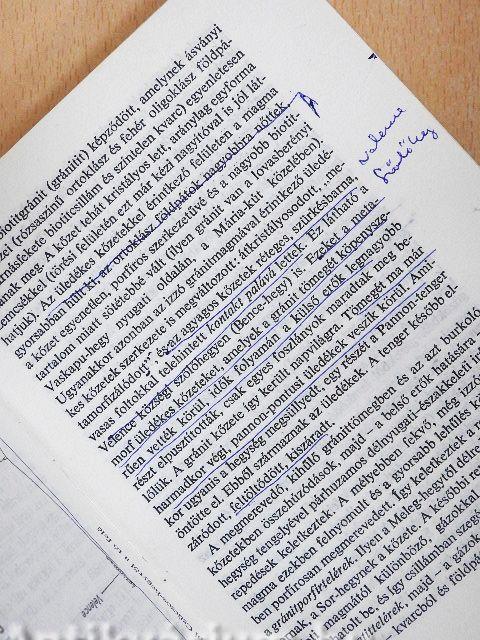 biotitgránit (gránitit) képződött, amelynek ásványi
(rózsaszínű ortoklász és fehér oligoklász földpá-
biotitcsillám és színtelen kvarc) egyenletesen
meg. A kőzet tehát kristályos lett, aránylag egyforma
szemcsékkel (törési felületén ezt már kézi nagyítóval is jól lát-
hatjuk). Az üledékes kőzetekkel érintkező felületen a magma
gyorsabban hűlt ki, az ortoklász földpátok nagyobbra nőttek,
a kőzet egyenetlen, porfiros szerkezetűvé és a nagyobb biotit-
tartalom miatt sötétebbé vált (ilyen gránit van a lovasberényi
Vaskapu-hegy nyugati oldalán, a Mária-kút közelében).
Ugyanakkor azonban az izzó gránitmagmával érintkező üledé-
kes kőzetek szerkezete is megváltozott: átkristályosodott, „me-
tamorfizálódott”; az agyagos kőzetek réteges, szürkésbarna,
vasas foltokkal telehintett kontakt palává lettek. Ez látható a
Velence községi szőlőhegyen (Bence-hegy) is. Ezeket a meta-
morf üledékes kőzeteket, amelyek a gránit tömegét köpenysze-
rűen vették körül, idők folyamán a külső erők legnagyobb
részt elpusztították, csak egyes foszlányok maradtak meg be-
lőlük. A gránit kőzete így került napvilágra. Tömegét ma már
harmadkor végi, pannon-pontusi üledékek veszik körül. Ami-
kor ugyanis a hegység megsüllyedt, egy részét a Pannon-tenger
öntötte el. Ebből származnak az üledékek. A tenger később el-
záródott, feltöltődött, kiszáradt.
A megmerevedő, kihűlő gránittömegben és az azt burkoló
kőzetekben összehúzódások majd – a belső erők hatására –
hegység tengelyével párhuzamos délnyugati–északkeleti
repedések keletkeztek. A mélyebben fekvő, még
magma ezekben felnyomult és a gyorsabb lehűlés
ben porfirosan megmerevedett. Így keletkeztek a
gránitporfirtelérek. Ilyen a Meleg-hegytől délre
nak, a Sor-hegynek a kőzete. A későbbi
magmától különböző, gázokkal
be, és így csillámban szegény
telérek, majd – a gázok
kvarcból és földpát
velence
Velence